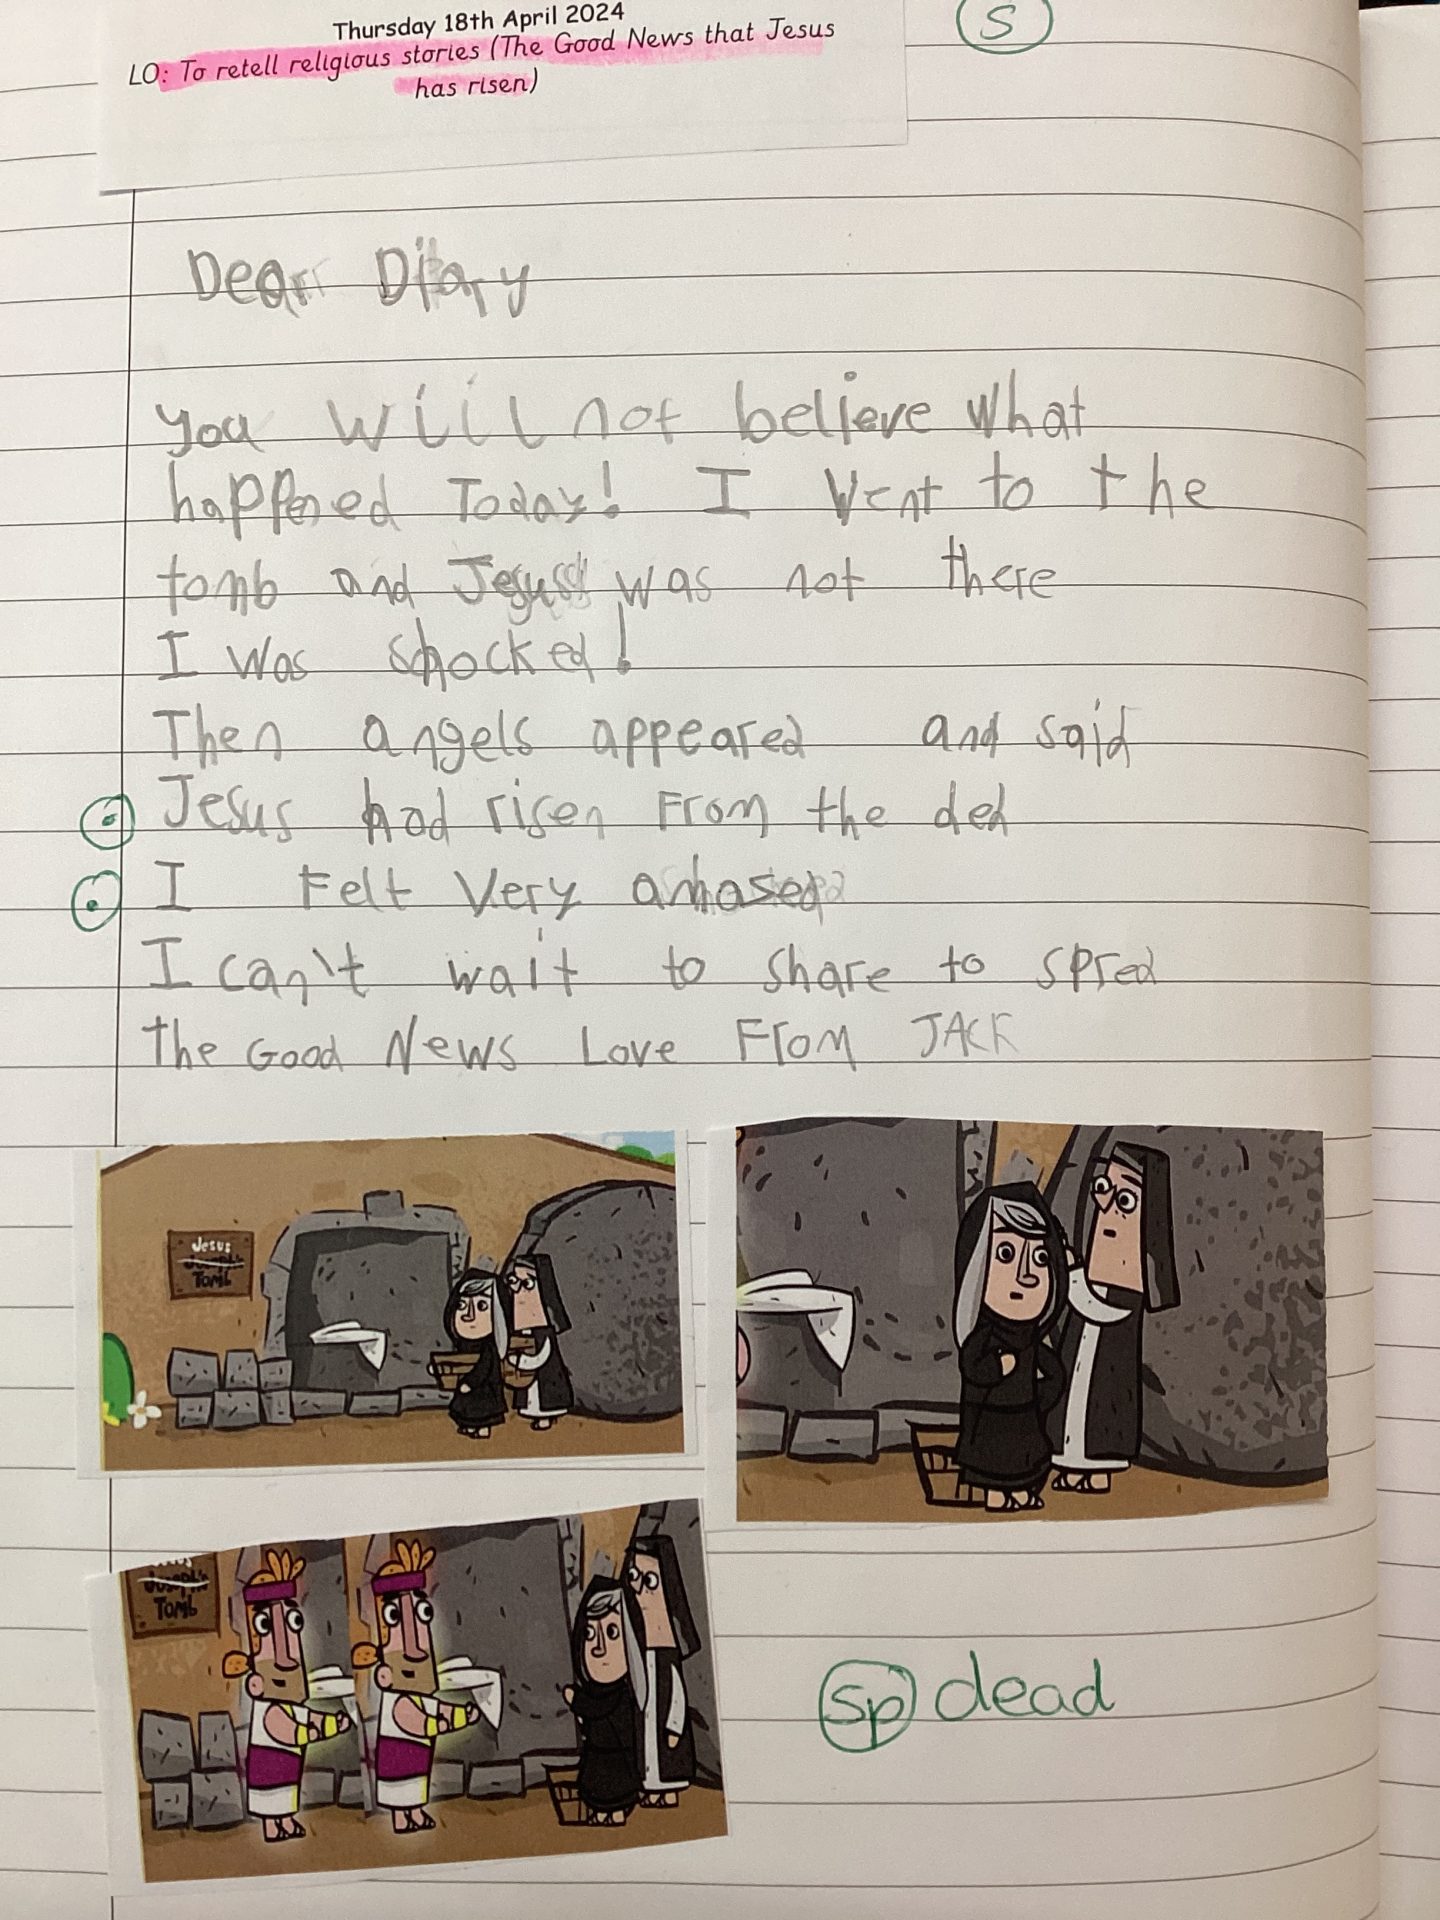 Thursday 18th April 2024
S
LO: To retell religious stories (The Good News that Jesus
has risen)
Dear Diary
you will not believe what
happened Today! I Went to the
tomb and Jesus was not there
I was shocked!
Then angels appeared and said
Jesus had risen From the ded
I Felt Very amased
I can't wait to share to spred
the Good News Love From JACK
Jesus
Joseph's
Tomb
Joseph's
Tomb
sp dead